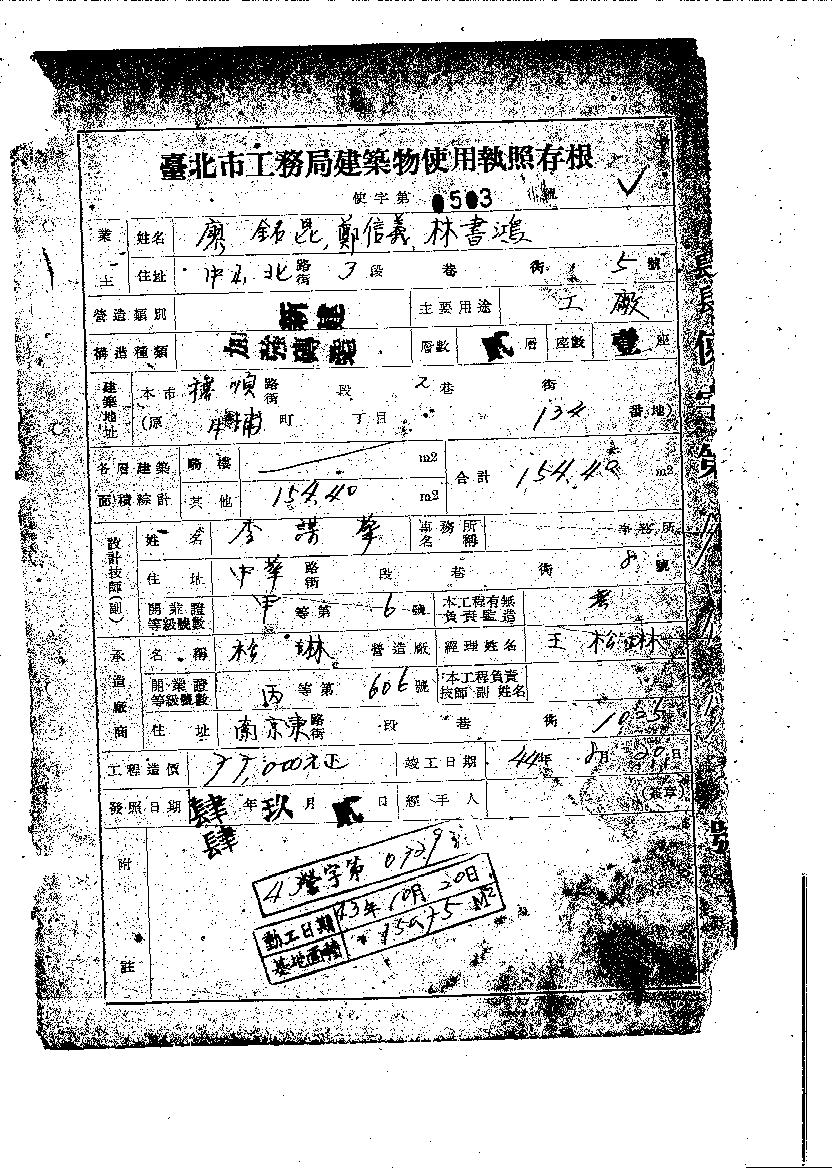 臺北市工務局建築物使用執照存根
使字第 0503 號
業主 姓名 廖銘昆, 鄭信義, 林書鴻
住址 中山北 路街 3 段 巷 街 5 號
營造類別 新建 主要用途 工廠
構造種類 加強磚造 層數 貳 層 座數 壹 座
建築地址 本市 穠順 路街 段 2 巷 街
(原 町 丁目 134 番地)
各層建築面積綜計 騎樓 m2 合計 154.40 m2
其他 154.40 m2
設計技師(副) 姓名 李謀華 事務所名稱 事務所
住址 中華 路街 段 巷 街 8 號
開業證等級號數 甲 等第 6 號 本工程有無負責監造
承造廠商 名稱 松琳 營造廠 經理姓名 王松琳
開業證等級號數 丙 等第 606 號 本工程負責技師副姓名
住址 南京東 路街 段 巷 街
工程造價 77,000元正 竣工日期 44年 8月 30日
發照日期 肆肆 年 玖 月 貳 日 經手人 (蓋章)
附註
營字第
動工日期 43年10月20日
基地面積 M2